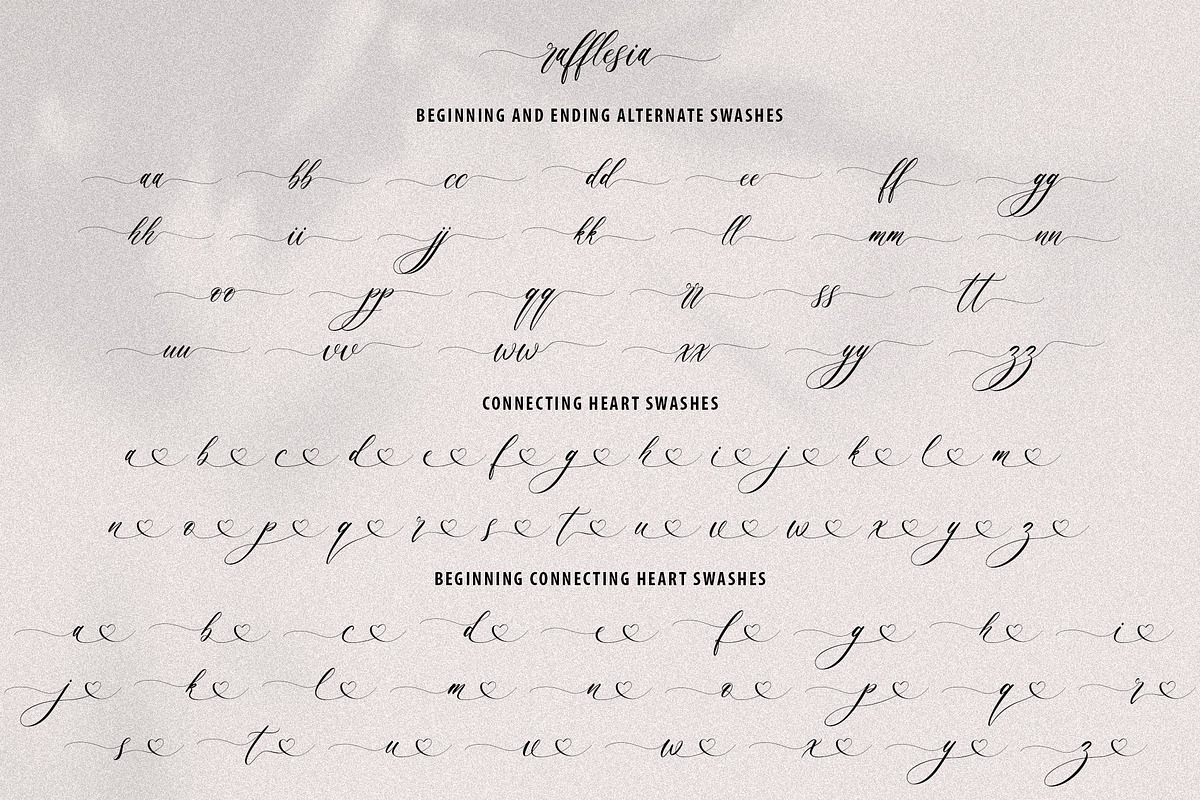 rafflesia
BEGINNING AND ENDING ALTERNATE SWASHES
aa bb cc dd ee ff gg
hh ii jj kk ll mm nn
oo pp qq rr ss tt
uu vv ww xx yy zz
CONNECTING HEART SWASHES
a♡ b♡ c♡ d♡ e♡ f♡ g♡ h♡ i♡ j♡ k♡ l♡ m♡
n♡ o♡ p♡ q♡ r♡ s♡ t♡ u♡ v♡ w♡ x♡ y♡ z♡
BEGINNING CONNECTING HEART SWASHES
a♡ b♡ c♡ d♡ e♡ f♡ g♡ h♡ i♡
j♡ k♡ l♡ m♡ n♡ o♡ p♡ q♡ r♡
s♡ t♡ u♡ v♡ w♡ x♡ y♡ z♡